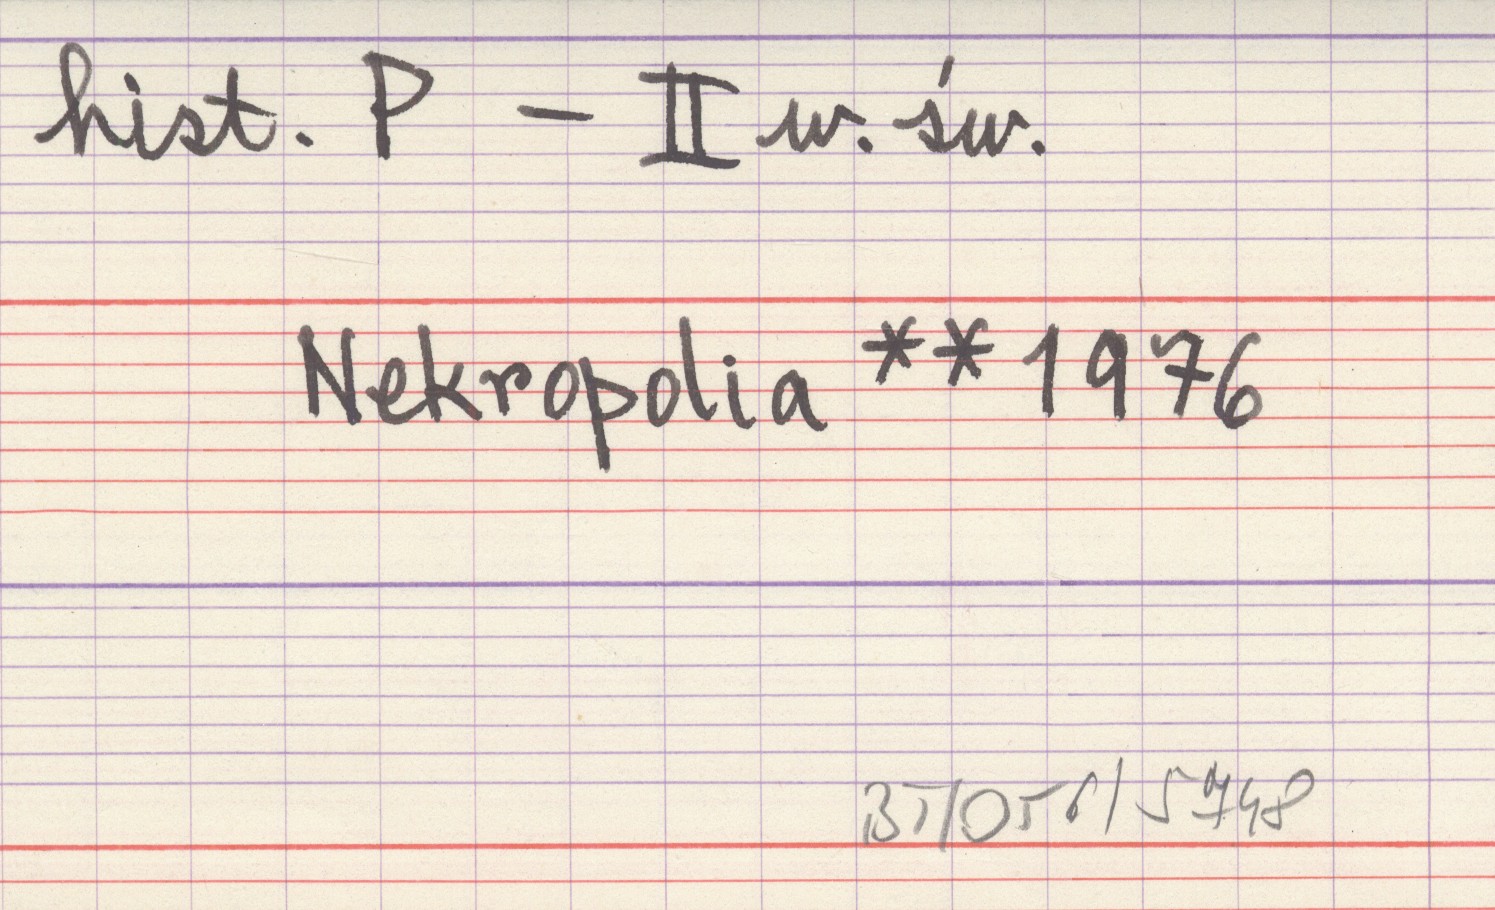 hist. P - II w. św.
Nekropolia ** 1976
BT/056/5748